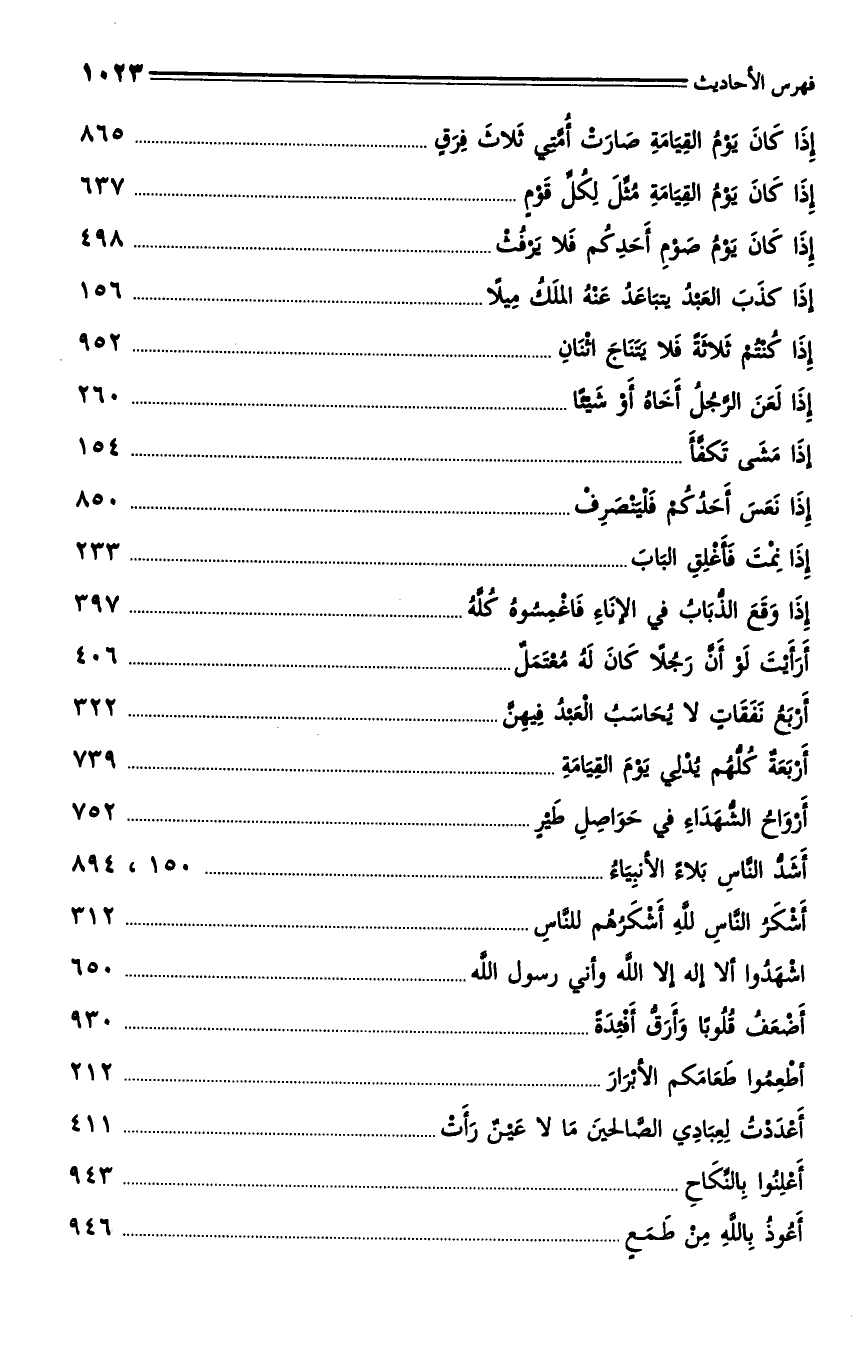 فهرس الأحاديث ١٠٢٣
إِذَا كَانَ يَوْمُ القِيَامَةِ صَارَتْ أُمَّتِي ثَلاثَ فِرَقٍ ٨٦٥
إِذَا كَانَ يَوْمُ القِيَامَةِ مُثِّلَ لِكُلِّ قَوْمٍ ٦٣٧
إِذَا كَانَ يَوْمُ صَوْمِ أَحَدِكُم فَلا يَرْفُثْ ٤٩٨
إِذَا كذَبَ العَبْدُ يتبَاعَدُ عَنْهُ الملَكُ مِيلًا ١٥٦
إِذَا كُنْتُمْ ثَلاثَةً فَلا يَتَنَاجَ اثْنَانِ ٩٥٢
إِذَا لَعَنَ الرَّجُلُ أَخَاهُ أَوْ شَيْئًا ٢٦٠
إِذَا مَشَى تَكفَّأَ ١٥٤
إِذَا نَعَسَ أَحَدُكُمْ فَلْيَنْصَرِفْ ٨٥٠
إِذَا نِمْتَ فَأَغْلِقِ البَابَ ٢٣٣
إِذَا وَقَعَ الذُّبَابُ في الإنَاءِ فَاغْمِسُوهُ كُلَّهُ ٣٩٧
أَرَأَيْتَ لَوْ أَنَّ رَجُلًا كَانَ لَهُ مُعْتَمَلٌ ٤٠٦
أَرْبَعُ نَفَقَاتٍ لا يُحَاسَبُ الْعَبْدُ فِيهِنَّ ٣٢٢
أَرْبَعَةٌ كُلُّهُم يُدْلِي يَوْمَ القِيَامَةِ ٧٣٩
أَرْوَاحُ الشُّهَدَاءِ في حَوَاصِلِ طَيْرٍ ٧٥٢
أَشَدُّ النَّاسِ بَلاءً الأنبِيَاءُ ١٥٠ ، ٨٩٤
أَشْكَرُ النَّاسِ للَّهِ أَشْكَرُهُم للنَّاسِ ٣١٢
اشْهَدُوا ألا إله إلا اللَّه وأني رسول اللَّه ٦٥٠
أَضْعَفُ قُلُوبًا وَأَرَقُّ أَفْئِدَةً ٩٣٠
أطْعِمُوا طَعَامَكم الأبْرَارَ ٢١٢
أَعْدَدْتُ لِعِبَادِي الصَّالحينَ مَا لا عَيْنٌ رَأَتْ ٤١١
أَعْلِنُوا بِالنِّكَاحِ ٩٤٣
أَعُوذُ بِاللَّهِ مِنْ طَمَعٍ ٩٤٦